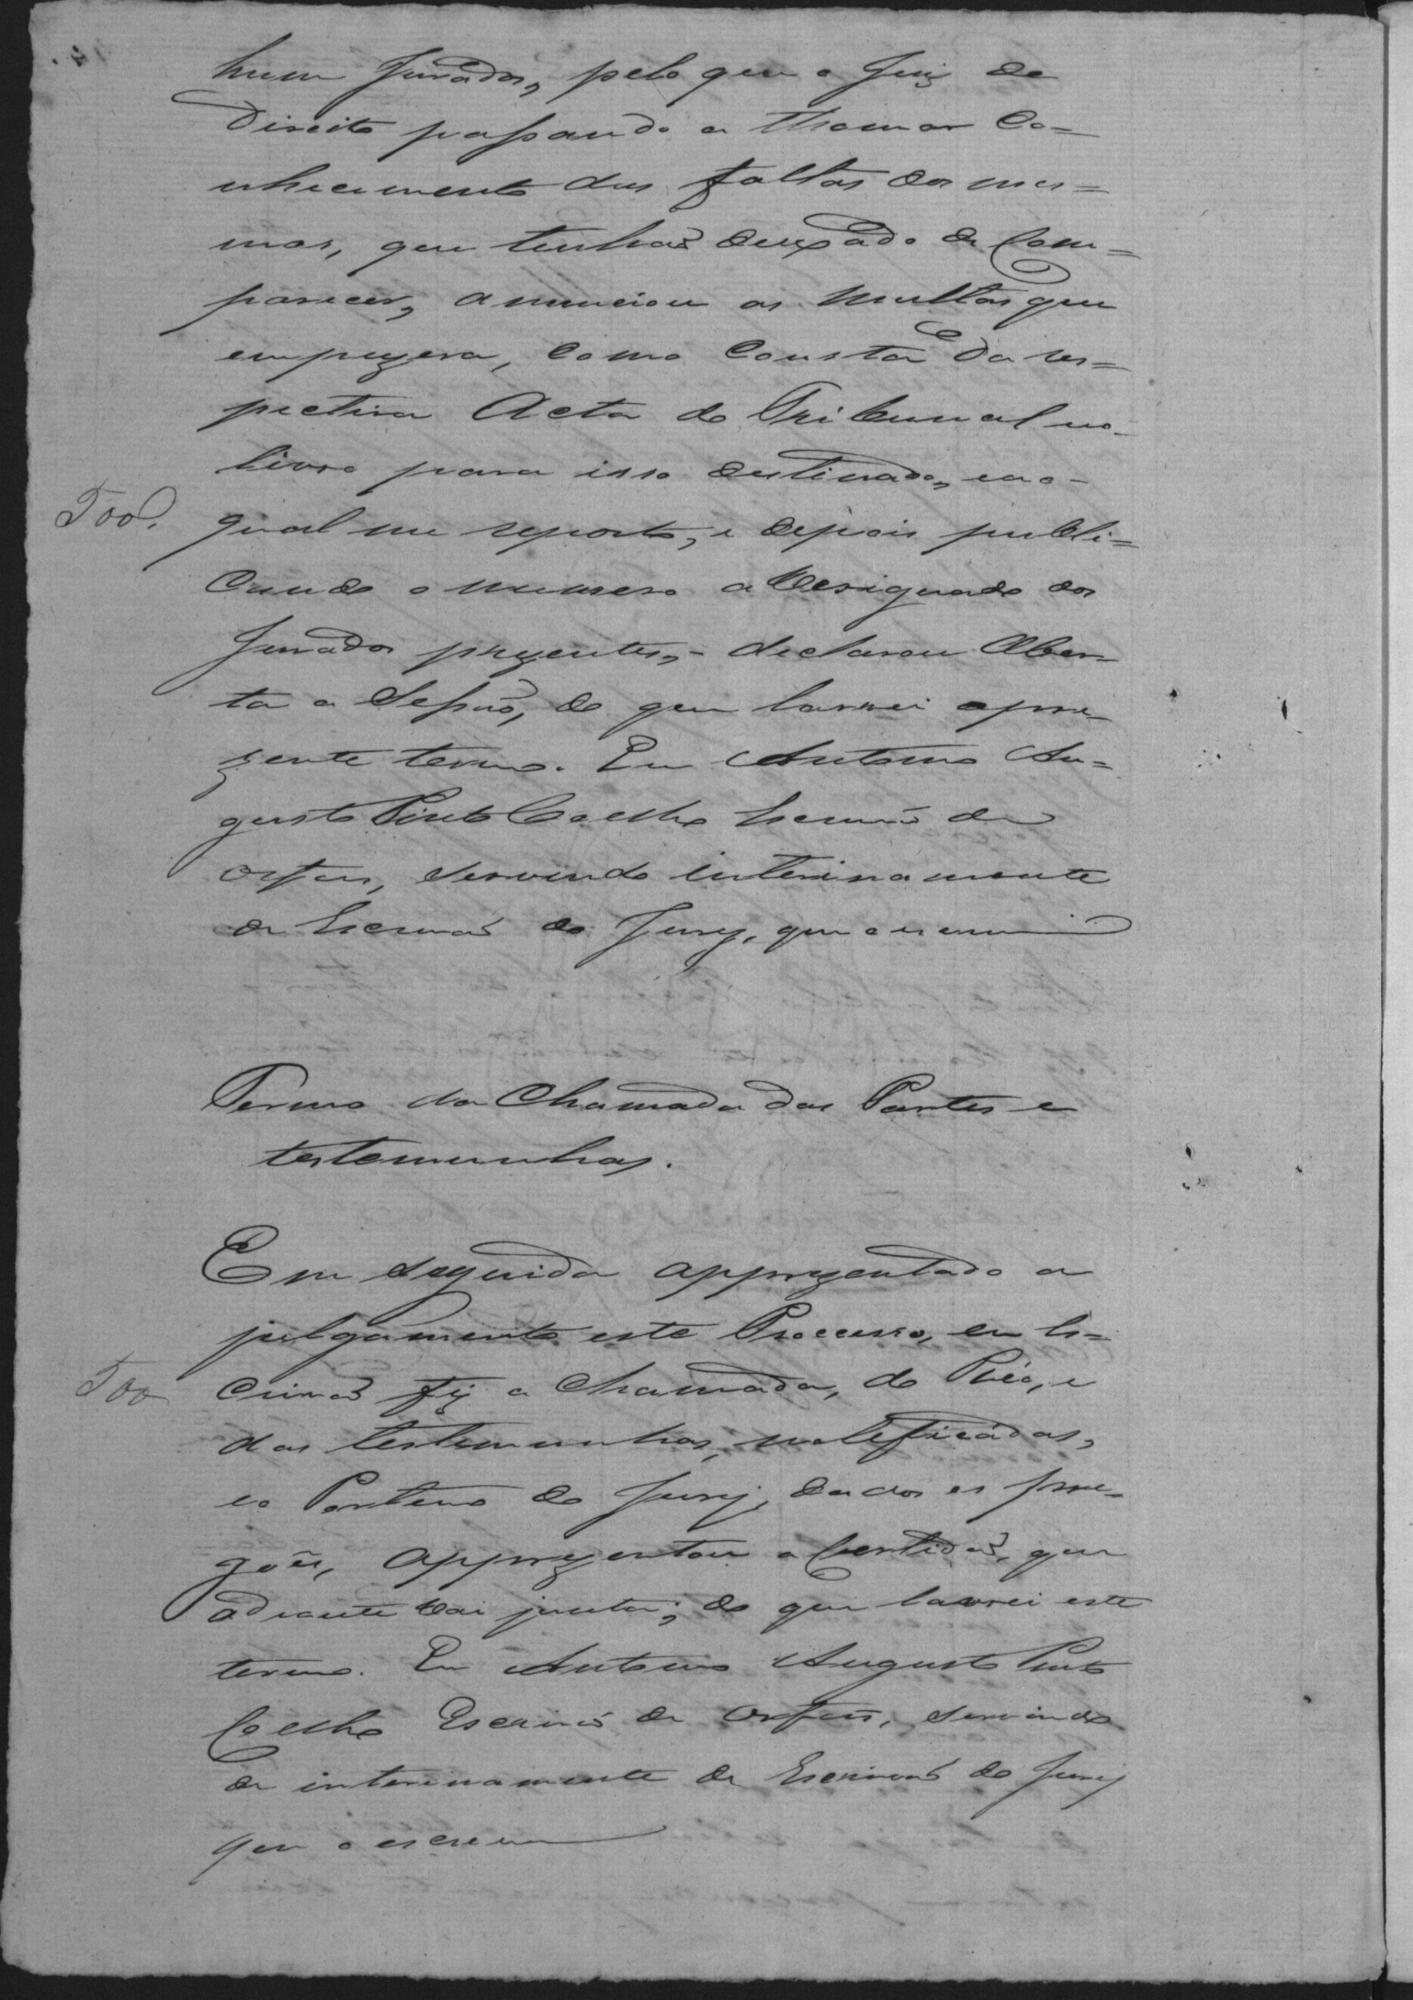 hum Jurados, pelo que o Juiz de
Direito passando a thomar Co=
nhecimento das faltas dos mes=
mos, que tinhaõ deixado de Com=
parecer, annunciou as multas que
empuzera, como Consta da res=
pectiva Acta do Tribunal no
livro para isso destinado, ao
500. qual me reporto, e depois publi=
cando o numero a designado dos
Jurados prezentes, declarou Aber
ta a Sessaõ, do que lavrei o pre
zente termo. Eu Antonio Au=
gusto Pinto Coelho Escrivaõ de
orfaõs, servindo interinamente
de Escrivaõ do Jury, que o escrevi
Termo da Chamada das Partes e
testemunhas.
Em seguida apprezentado a
julgamento este Processo, eu Es=
500 crivaõ fiz a chamada, do Réo, e
das testemunhas, notificádas,
e o Porteiro do Jury, dados os pre
goẽs, apprezentou a Certidaõ, que
adiante vai junta; do que lavrei este
termo. Eu Antonio Augusto Pinto
Coelho Escrivaõ de Orfaõs, servindo
de interinamente de Escrivaõ do Jury
que o escrevi